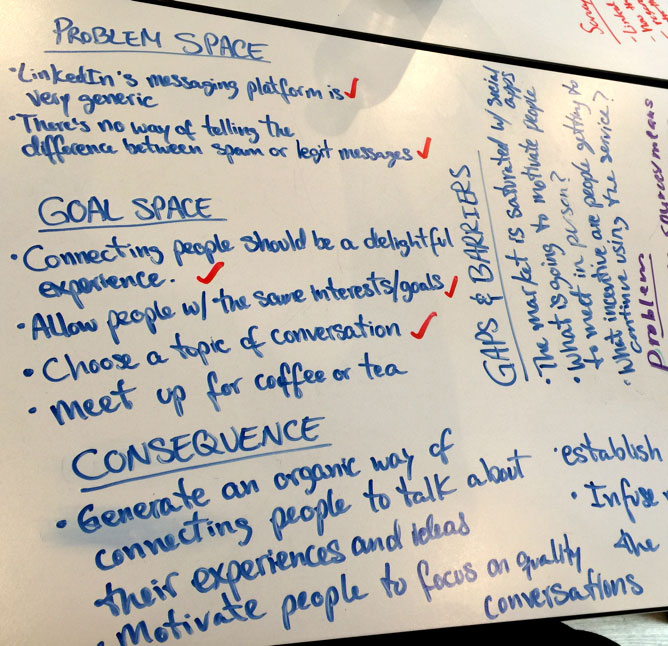 PROBLEM SPACE
• LinkedIn's messaging platform is
very generic
• There's no way of telling the
difference between spam or legit messages
GOAL SPACE
• Connecting people should be a delightful
experience.
• Allow people w/ the same interests/goals
• Choose a topic of conversation
• Meet up for coffee or tea
CONSEQUENCE
• Generate an organic way of
connecting people to talk about
their experiences and ideas
• Motivate people to focus on quality
conversations
• establish
• Infuse
the
GAPS & BARRIERS
• The market is saturated w/ social
apps
• What is going to motivate people
to meet in person?
• What incentive are people getting to
continue using the service?
Problem
means